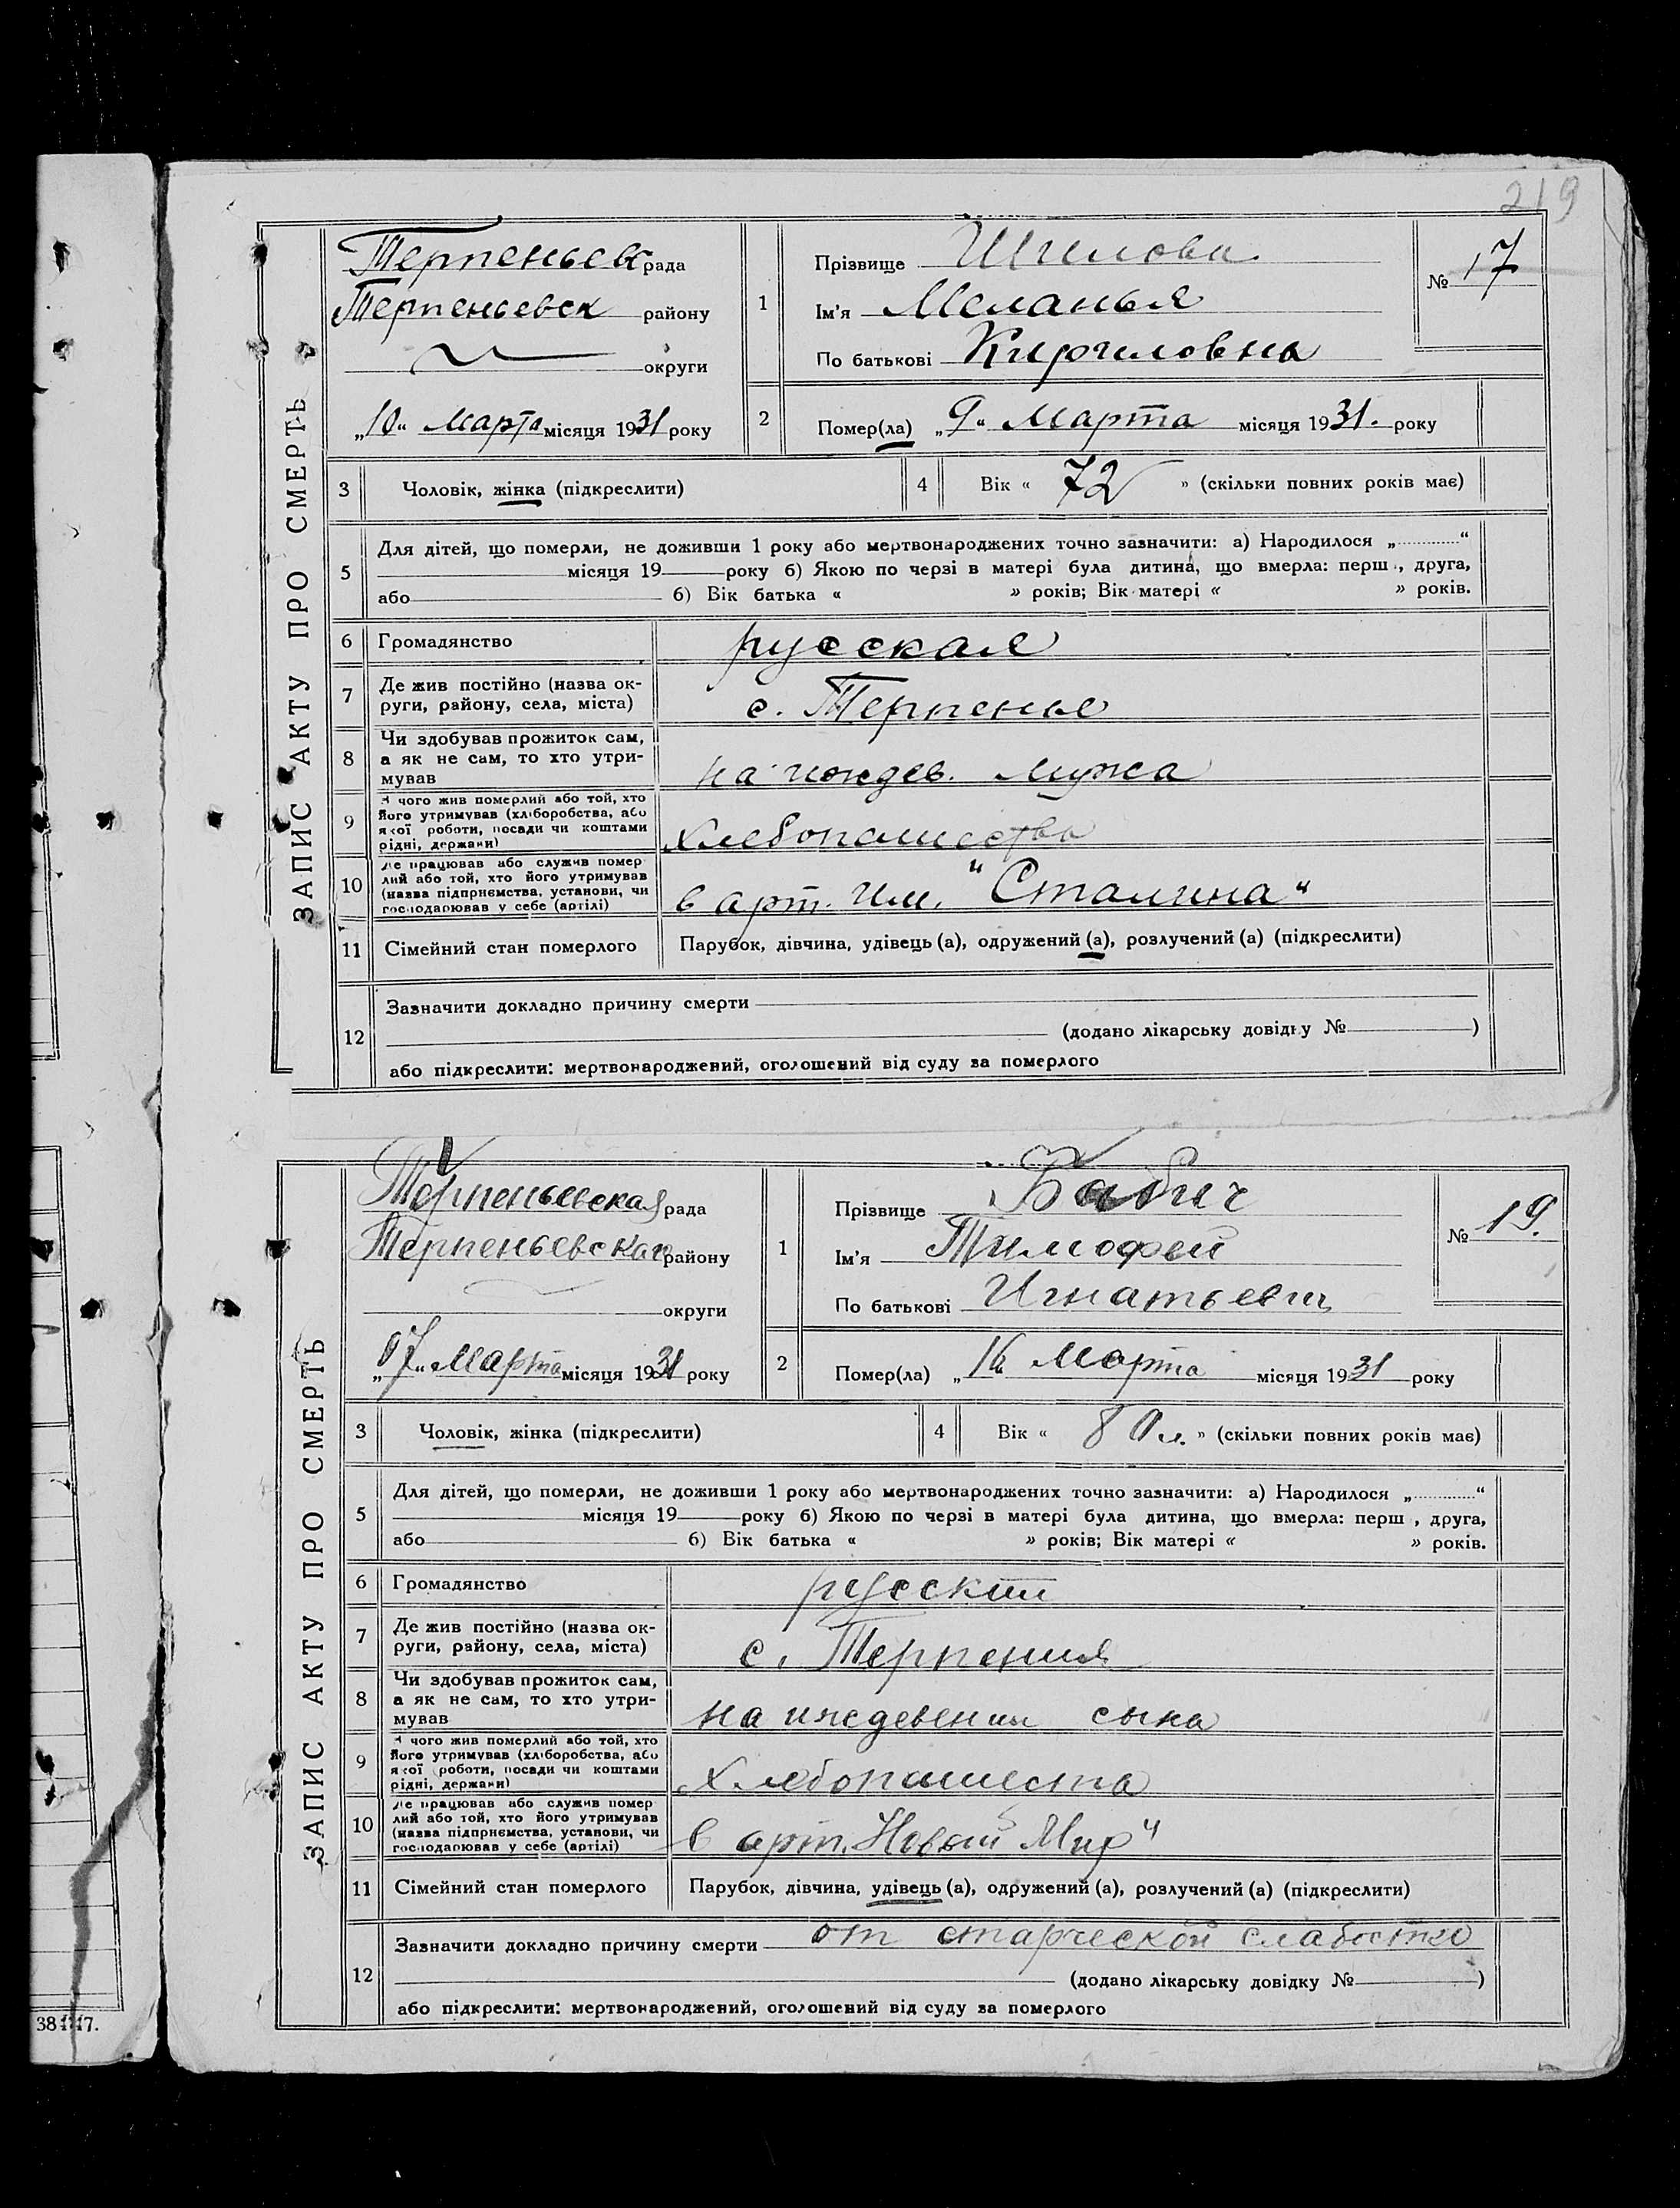 219
ЗАПИС АКТУ ПРО СМЕРТЬ
Терпеньевск рада
Терпеньевск району
округи
„10“ Марта місяця 1931 року
1
Прізвище
Ім'я Меланья
По батькові Кириловна
№ 17
2
Помер(ла) „9“ Марта місяця 1931. року
3
Чоловік, жінка (підкреслити)
4
Вік « 72 » (скільки повних років має)
5
Для дітей, що померли, не доживши 1 року або мертвонароджених точно зазначити: а) Народилося „............“
місяця 19 року б) Якою по черзі в матері була дитина, що вмерла: перш , друга,
або б) Вік батька « » років; Вік матері « » років.
6
Громадянство русская
7
Де жив постійно (назва ок-
руги, району, села, міста) с. Терпенье
8
Чи здобував прожиток сам,
а як не сам, то хто утри-
мував на иждев. мужа
9
З чого жив померлий або той, хто
його утримував (хліборобства, або
якої роботи, посади чи коштами
рідні, держави) Хлебопашество
10
Де працював або служив помер
лий або той, хто його утримував
(назва підприємства, установи, чи
господарював у себе (артілі) в арт. им. "Сталина"
11
Сімейний стан померлого Парубок, дівчина, удівець (а), одружений (а), розлучений (а) (підкреслити)
12
Зазначити докладно причину смерти
(додано лікарську довідку № )
або підкреслити: мертвонароджений, оголошений від суду за померлого
ЗАПИС АКТУ ПРО СМЕРТЬ
Терпеньевская рада
Терпеньевская району
округи
марта місяця 1931 року
1
Прізвище Бабич
Ім'я Тимофей
По батькові Игнатьевич
№ 19.
2
Помер(ла) „16 Марта місяця 1931 року
3
Чоловік, жінка (підкреслити)
4
Вік « 80 л. » (скільки повних років має)
5
Для дітей, що померли, не доживши 1 року або мертвонароджених точно зазначити: а) Народилося „............“
місяця 19 року б) Якою по черзі в матері була дитина, що вмерла: перш , друга,
або б) Вік батька « » років; Вік матері « » років.
6
Громадянство русский
7
Де жив постійно (назва ок-
руги, району, села, міста) с. Терпения
8
Чи здобував прожиток сам,
а як не сам, то хто утри-
мував на иждевении сына
9
З чого жив померлий або той, хто
його утримував (хліборобства, або
якої роботи, посади чи коштами
рідні, держави) Хлебопашества
10
Де працював або служив помер
лий або той, хто його утримував
(назва підприємства, установи, чи
господарював у себе (артілі) в арт. Новый Мир"
11
Сімейний стан померлого Парубок, дівчина, удівець (а), одружений (а), розлучений (а) (підкреслити)
12
Зазначити докладно причину смерти от старческой слабостью
(додано лікарську довідку № )
або підкреслити: мертвонароджений, оголошений від суду за померлого